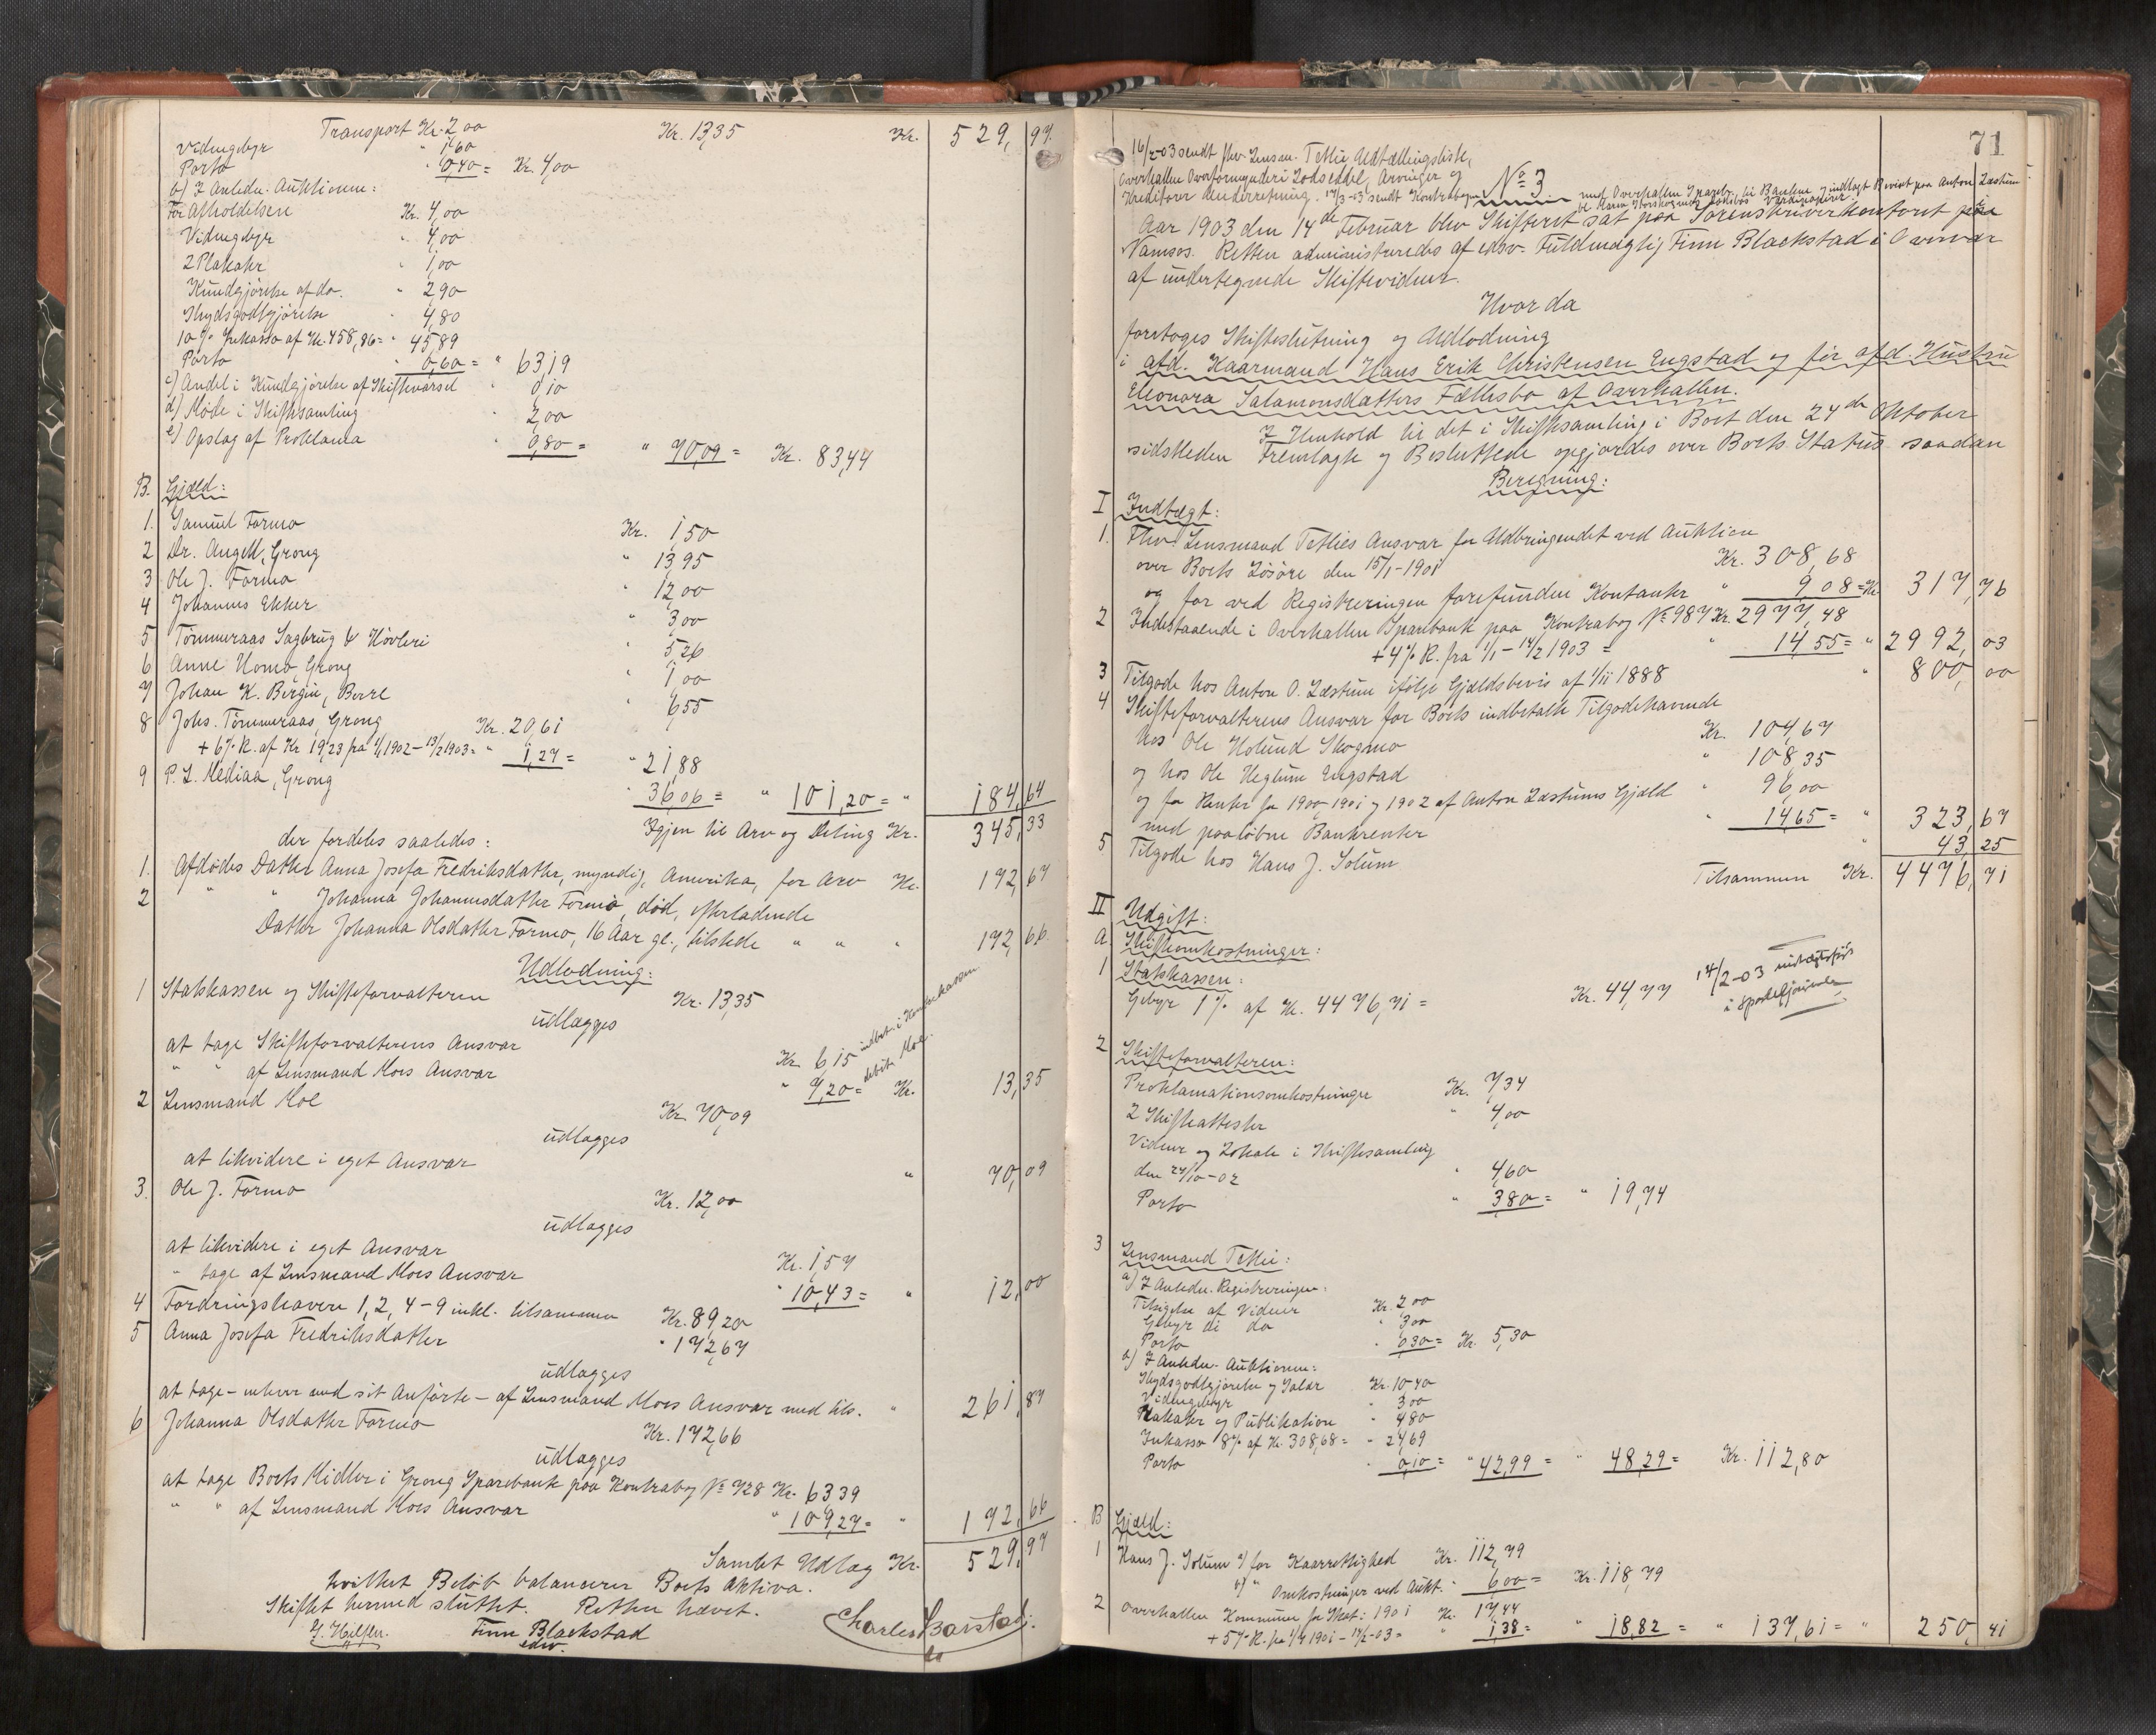 Transport Kr. 2,00 Kr. 13,35 Kr. 529,97
Vidnegebyr " 1,60
Porto " 0,40 = Kr. 4,00
b) I Anledn. Auktionen:
For Afholdelsen Kr. 4,00
Vidnegebyr " 4,00
2 Plakater " 1,00
Kundgjørelse af do. " 2,90
Skydsgodtgjørelse " 4,80
10 % Inkasso af Kr. 458,86 = " 45,89
Porto " 0,60 = " 63,19
c) Andel i Kundgjørelse af Skiftevarsel " 0,10
d) Møde i Skiftesamling " 2,00
e) Opslag af Proklama " 0,80 = " 70,09 = Kr. 83,44
B. Gjæld:
1. Samuel Formo Kr. 1,50
2 Dr. Angell, Grong " 13,95
3 Ole J. Formo " 12,00
4 Johannes Ekker " 3,00
5 Tømmeraas Sagbrug & Høvleri " 5,26
6 Anne Homo, Grong " 1,00
7 Johan K. Bergin, Berre " 6,55
8 Johs. Tømmeraas, Grong Kr. 20,61
+ 6 % R. af Kr 19,23 fra 1/1 1902 - 13/2 1903 = " 1,27 = " 21,88
9 P. L. Mediaa, Grong " 36,06 = " 101,20 = " 184,64
Igjen til Arv og Deling Kr. 345,33
der fordeles saaledes:
1. Afdødes Datter Anna Josefa Fredriksdatter, myndig, Amerika, for Arv Kr. 172,67
2 " " Johanna Johannesdatter Formo, død, efterladende
Datter Johanna Olsdatter Formo, 16 Aar gl., tilstede " " " 172,66
Udlodning:
1 Statskassen og Skifteforvalteren Kr. 13,35
udlægges
at tage Skifteforvalterens Ansvar Kr. 6,15
" " af Lensmand Moes Ansvar " 7,20 = Kr. 13,35
2 Lensmand Moe Kr. 70,09
udlægges
at likvidere i eget Ansvar " 70,09
3. Ole J. Formo Kr. 12,00
udlægges
at likvidere i eget Ansvar Kr. 1,57
" tage af Lensmand Moes Ansvar " 10,43 = " 12,00
4 Fordringshavere 1, 2, 4-9 inkl. tilsammen Kr. 89,20
5 Anna Josefa Fredriksdatter " 172,67
udlægges
at tage - enhver med sit Anførte - af Lensmand Moes Ansvar med tils. " 261,87
6 Johanna Olsdatter Formo Kr. 172,66
udlægges
at tage Boets Midler i Grong Sparebank paa Kontrabog No 728 Kr. 63,39
" " af Lensmand Moes Ansvar " 109,27 = " 172,66
Samlet Udlæg Kr. 529,97
hvilket Beløb balancerer Boets Aktiva.
Skiftet hermed sluttet. Retten hævet.
Finn Blackstad
edsv.
71
16/2-03 sendt fhv. Lensm. Tetlie Udtællingsliste,
Overhallen Overformynderi Lodseddel, Arvinger og
Kreditorer Underretning. 17/3-03 sendt Kontrabogen
No 3
Aar 1903 den 14de Februar blev Skifteret sat paa Sorenskriverkontoret paa
Namsos. Retten administreredes af edsv. Fuldmægtig Finn Blackstad i Overvær
af undertegnede Skiftevidner.
Hvor da
foretoges Skifteslutning og Udlodning
i afd. Kaarmand Hans Erik Christensen Engstad og før afd. Hustru
Eleonora Salamonsdatters Fællesbo af Overhallen.
I Henhold til det i Skiftesamling i Boet den 24de Oktober
sidstleden Fremlagte og Besluttede opgjordes over Boets Status saadan
Beregning:
I Indtægt:
1. Fhv. Lensmand Tetlies Ansvar for Udbringendet ved Auktion
over Boets Løsøre den 15/1-1901 Kr. 308,68
og for ved Registreringen forefunden Kontanter " 9,08 = Kr. 317,76
2 Indestaaende i Overhallen Sparebank paa Kontrabog No 987 Kr. 2977,48
+ 4 % R. fra 1/1 - 14/2 1903 = " 14,55 = " 2992,03
3 Tilgode hos Anton O. Læstum ifølge Gjældsbevis af 1/11 1888 " 800,00
4 Skifteforvalterens Ansvar for Boets indbetalte Tilgodehavende
hos Ole Holund Skogmo Kr. 104,67
og hos Ole Heglum Engstad " 108,35
og for Renter for 1900, 1901 og 1902 af Anton Læstums Gjæld " 96,00
med paaløbne Bankrenter " 14,65 = " 323,67
5 Tilgode hos Hans J. Solum " 43,25
Tilsammen Kr. 4476,71
II Udgift:
A. Skifteomkostninger:
1 Statskassen:
Gebyr 1 % af Kr. 4476,71 = Kr. 44,77
14/2-03 indtægtsført
i Sportelljournalen
2 Skifteforvalteren:
Proklamationsomkostninger Kr. 7,34
2 Skifteattester " 4,00
Vidner og Lokale i Skiftesamling
den 24/10-02 " 4,60
Porto " 3,80 = " 19,74
3 Lensmand Tetlie:
a) I Anledn. Registreringen:
Tilsigelse af Vidner Kr. 2,00
Gebyr til do " 3,00
Porto " 0,30 = Kr. 5,30
b) I Anledn. Auktionen:
Skydsgodtgjørelse og Salær Kr. 10,40
Vidnegebyr " 3,00
Plakater og Publikation " 4,80
Inkasso 8 % af Kr. 308,68 = " 24,69
Porto " 0,10 = " 42,99 = " 48,29 = Kr. 112,80
B Gjæld:
1 Hans J. Solum a) for Kaarrettighed Kr. 112,79
b) " Omkostninger ved Aukt. " 6,00 = Kr. 118,79
2 Overhallen Kommune for Skat i 1901 Kr. 17,44
+ 5 % R. fra 1/7 1901 - 14/2-03 = " 1,38 = " 18,82 = " 137,61 = " 250,41